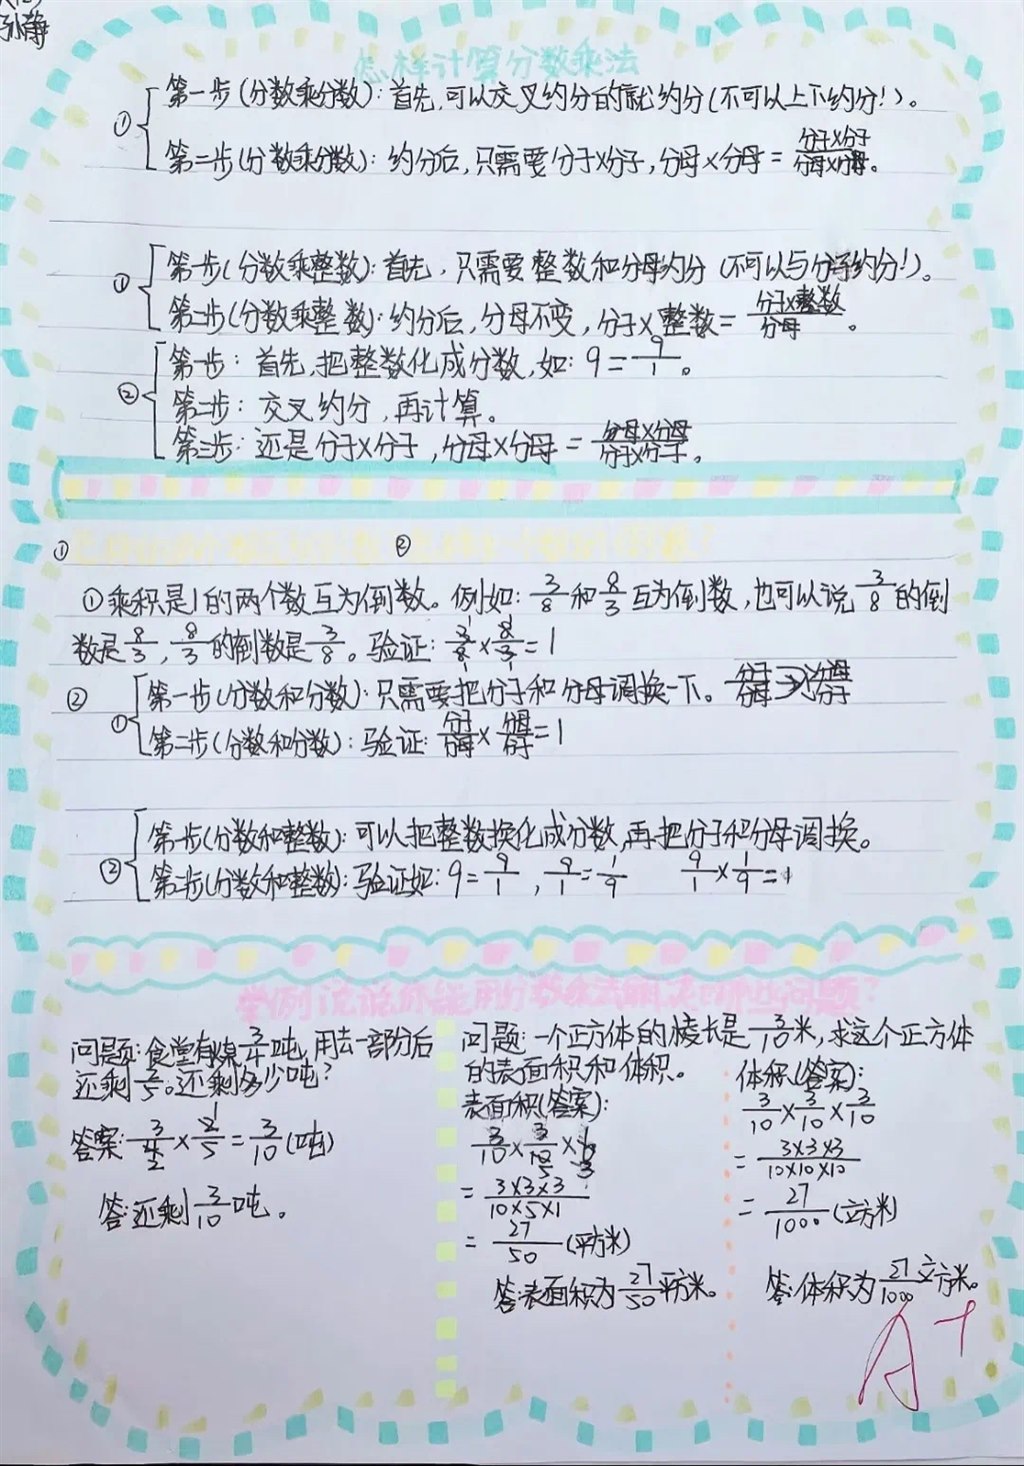 孙静
怎样计算分数乘法
① 第一步(分数乘分数):首先,可以交叉约分的就约分(不可以上下约分!)。
第二步(分数乘分数):约分后,只需要分子×分子,分母×分母=分子×分子/分母×分母。
① 第一步(分数乘整数):首先,只需要整数和分母约分(不可以与分子约分!)。
第二步(分数乘整数):约分后,分母不变,分子×整数=分子×整数/分母。
② 第一步:首先,把整数化成分数,如:9=9/1。
第二步:交叉约分,再计算。
第三步:还是分子×分子,分母×分母=分母×分母/分子×分子。
① ②
①乘积是1的两个数互为倒数。例如:3/8和8/3互为倒数,也可以说3/8的倒
数是8/3,8/3的倒数是3/8。验证:3/8×8/3=1
② ① 第一步(分数和分数):只需要把分子和分母调换一下。分子/分母→分母/分子
第二步(分数和分数):验证:分子/分母×分母/分子=1
② 第一步(分数和整数):可以把整数换化成分数,再把分子和分母调换。
第二步(分数和整数):验证如:9=9/1,9/1=1/9 9/1×1/9=1
举例说说你能用分数乘法解决哪些问题?
问题:食堂有煤3/4吨,用去一部分后
还剩2/5。还剩多少吨?
答案:3/4×2/5=3/10(吨)
答:还剩3/10吨。
问题:一个正方体的棱长是3/10米,求这个正方体
的表面积和体积。
表面积(答案):
3/10×3/10×6
=3×3×3/10×5×1
=27/50(平方米)
答:表面积为27/50平方米。
体积(答案):
3/10×3/10×3/10
=3×3×3/10×10×10
=27/1000(立方米)
答:体积为27/1000立方米。
A+